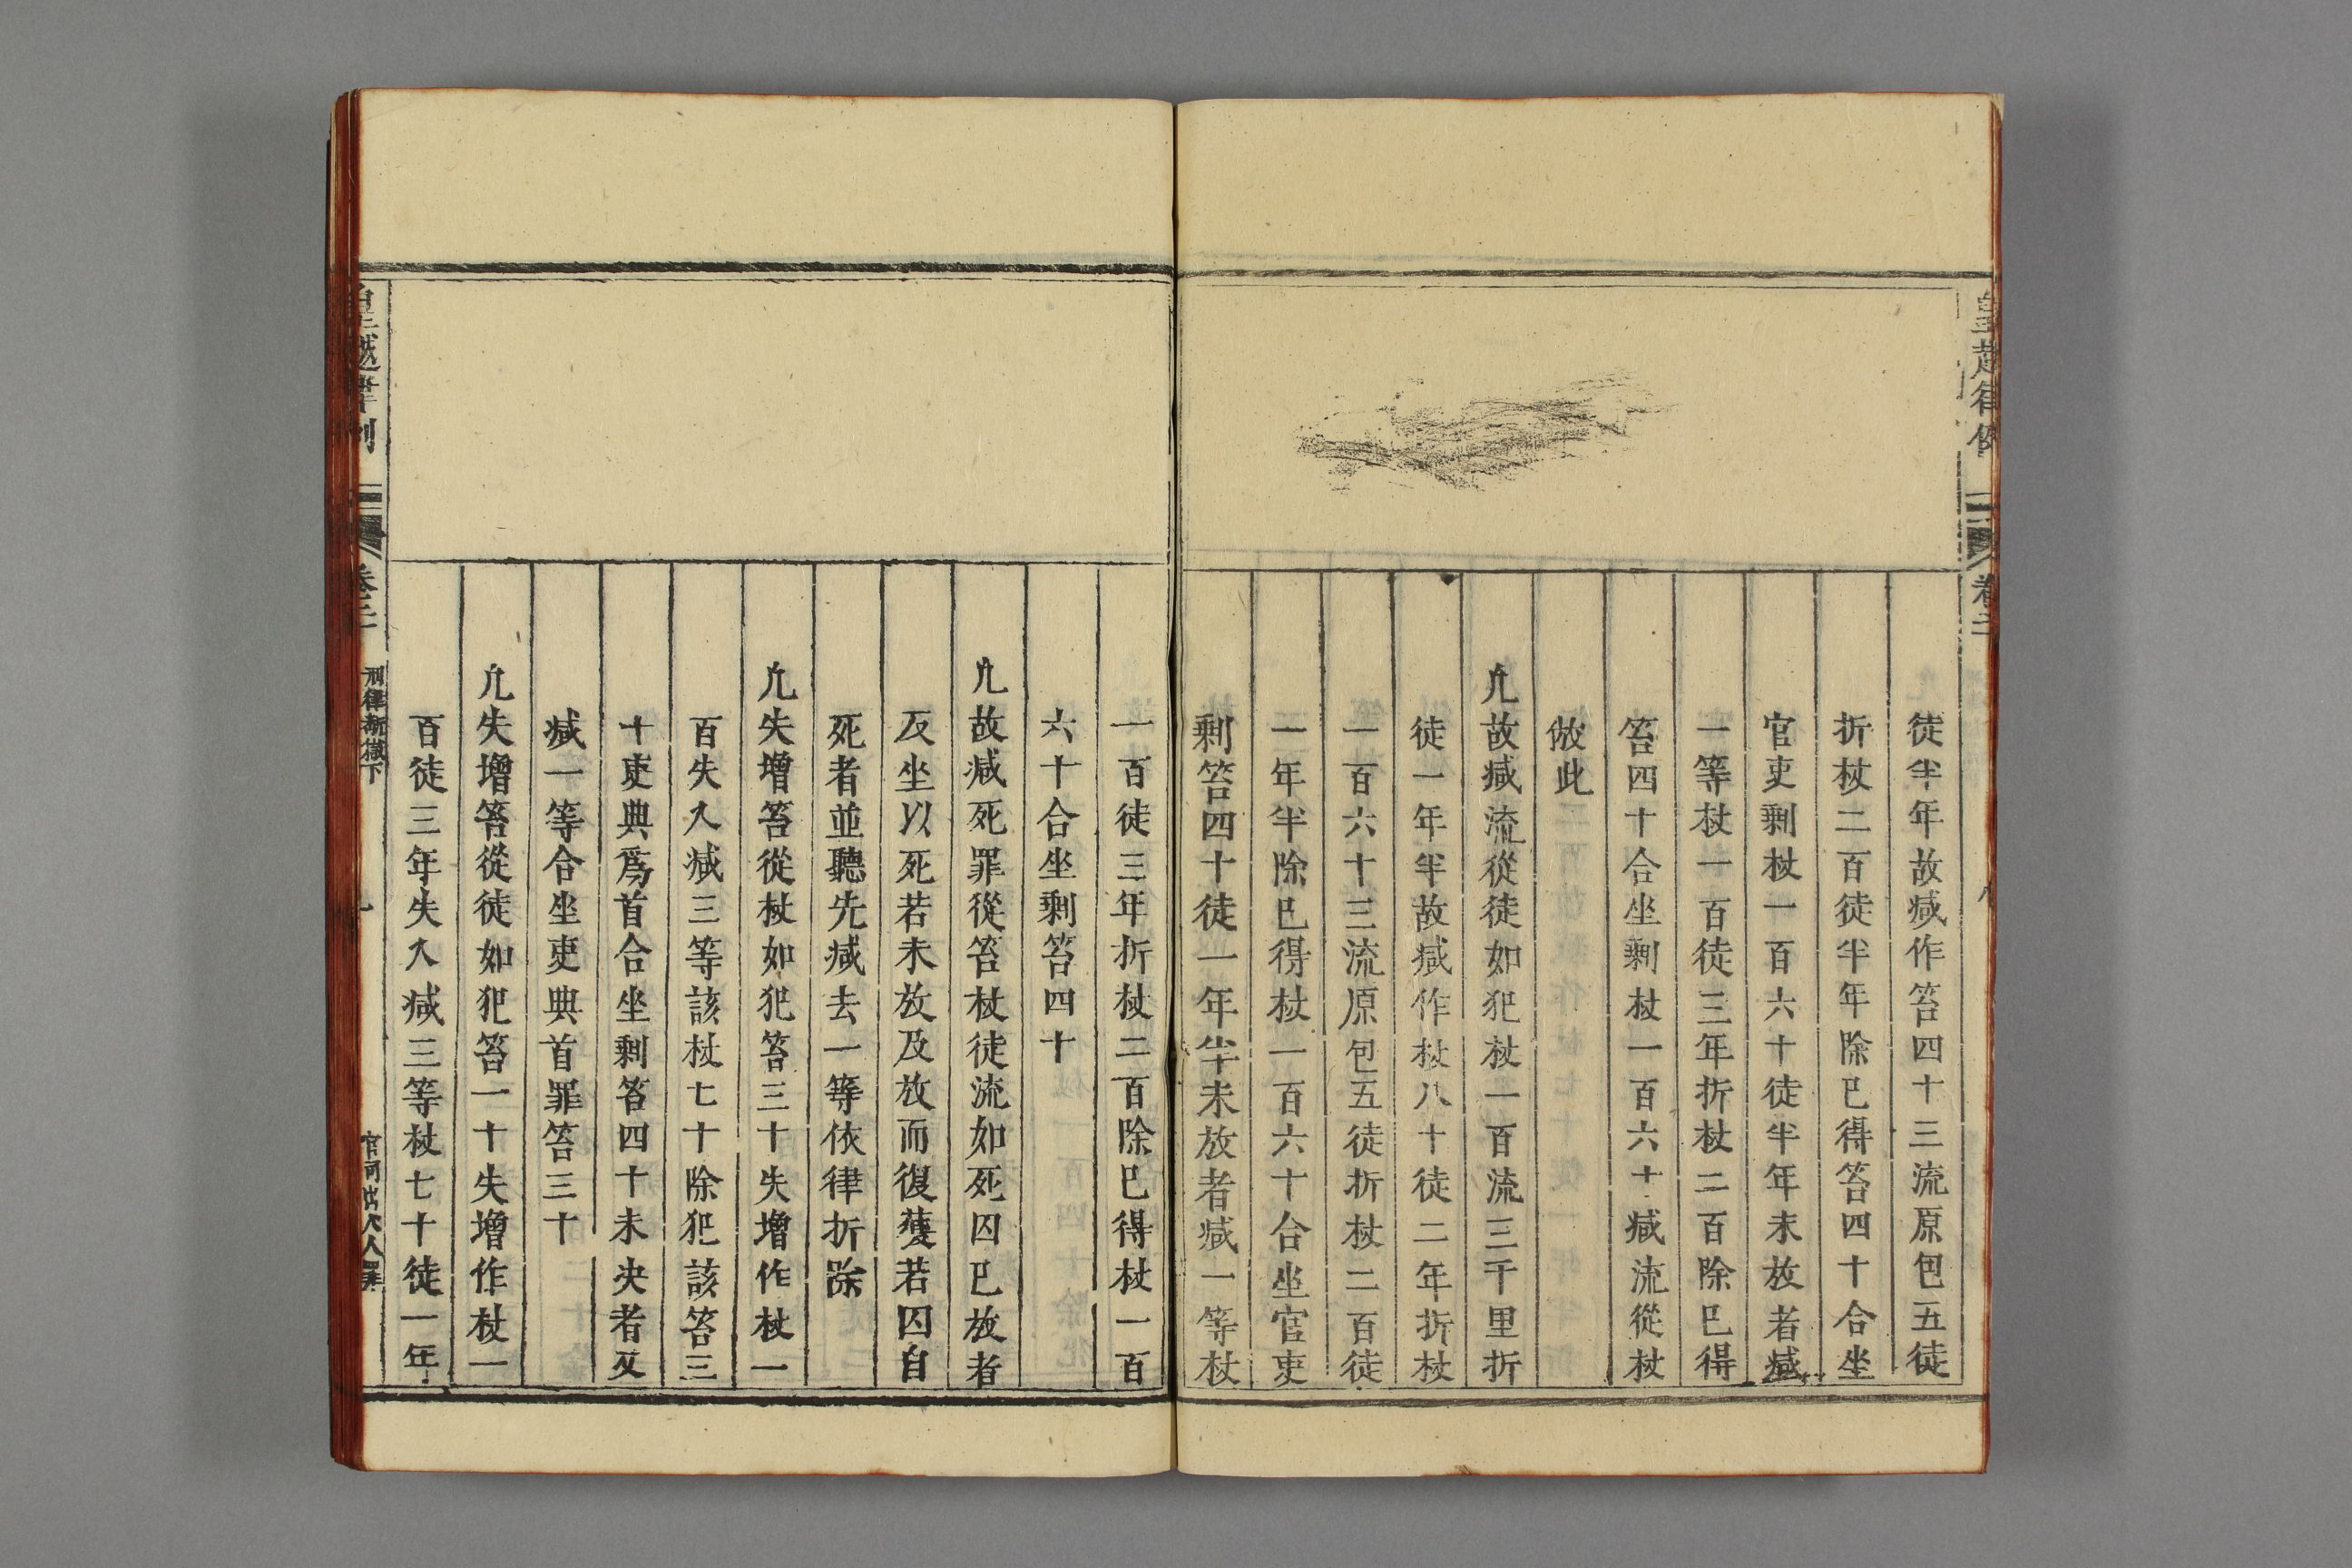 皇越律例
卷二
徒半年故減作笞四十三流原包五徒
折杖二百徒半年除已得笞四十合坐
官吏剩杖一百六十徒半年未放者減
一等杖一百徒三年折杖二百除已得
笞四十合坐剩杖一百六十減流從杖
倣此
凢故減流從徒如犯杖一百流三千里折
徒一年半故減作杖八十徒二年折杖
一百六十三流原包五徒折杖二百徒
一年半除已得杖一百六十合坐官吏
剩笞四十徒一年半未放者減一等杖
一百徒三年折杖二百除已得杖一百
六十合坐剩笞四十
凢故減死罪從笞杖徒流如死囚已放者
反坐以死若未放及放而復獲若囚自
死者並聽先減去一等依律折除
凢失增笞從杖如犯笞三十失增作杖一
百失入減三等該杖七十除犯該笞三
十吏典爲首合坐剩笞四十未决者又
減一等合坐吏典首罪笞三十
凢失增笞從徒如犯笞一十失增作杖一
百徒三年失入減三等杖七十徒一年
皇越律例
卷二
刑律斷獄下
官司出入人罪